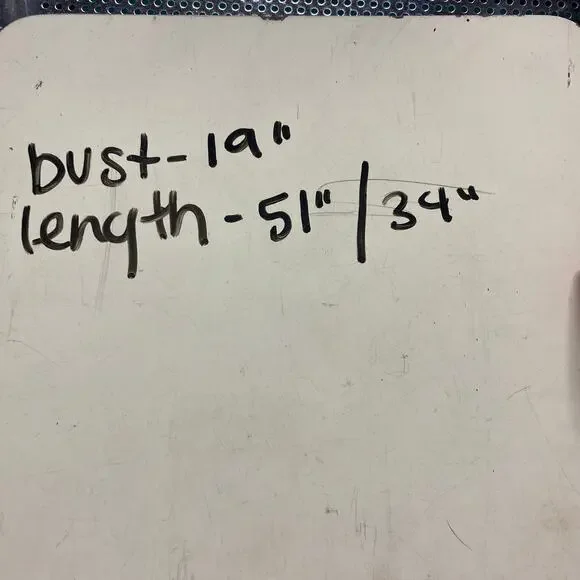 bust - 19"
length - 51" | 34"